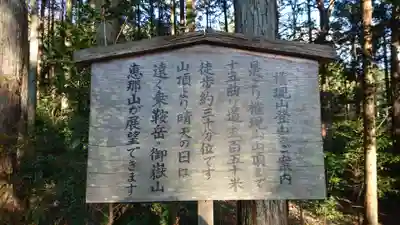 権現山登山ご案内
是より権現山山頂まで
十五曲り道千百五十米
徒歩約三十分位です
山頂より晴天の日は
遠く乗鞍岳・御嶽山
恵那山が展望できます